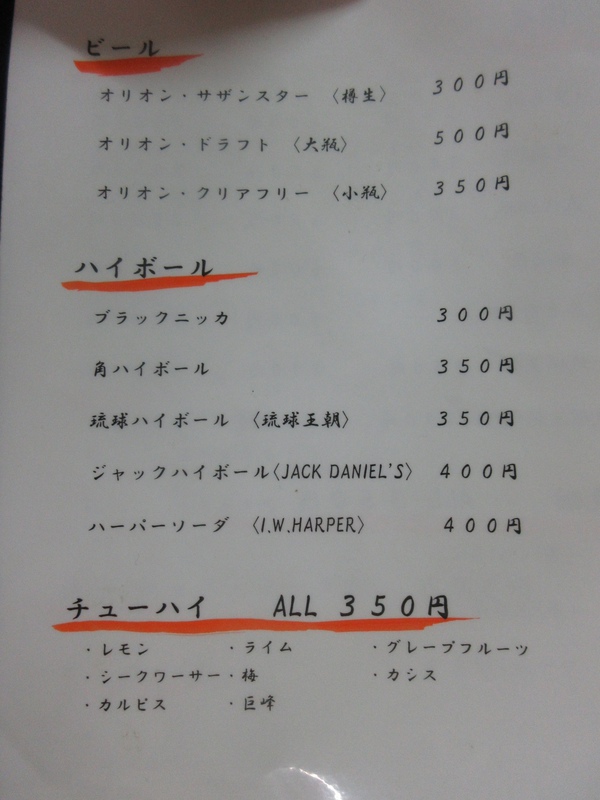 ビール
オリオン・サザンスター 〈樽生〉 300円
オリオン・ドラフト 〈大瓶〉 500円
オリオン・クリアフリー 〈小瓶〉 350円
ハイボール
ブラックニッカ 300円
角ハイボール 350円
琉球ハイボール 〈琉球王朝〉 350円
ジャックハイボール〈JACK DANIEL'S〉 400円
ハーパーソーダ 〈I.W.HARPER〉 400円
チューハイ ALL 350円
・レモン ・ライム ・グレープフルーツ
・シークワーサー ・梅 ・カシス
・カルピス ・巨峰